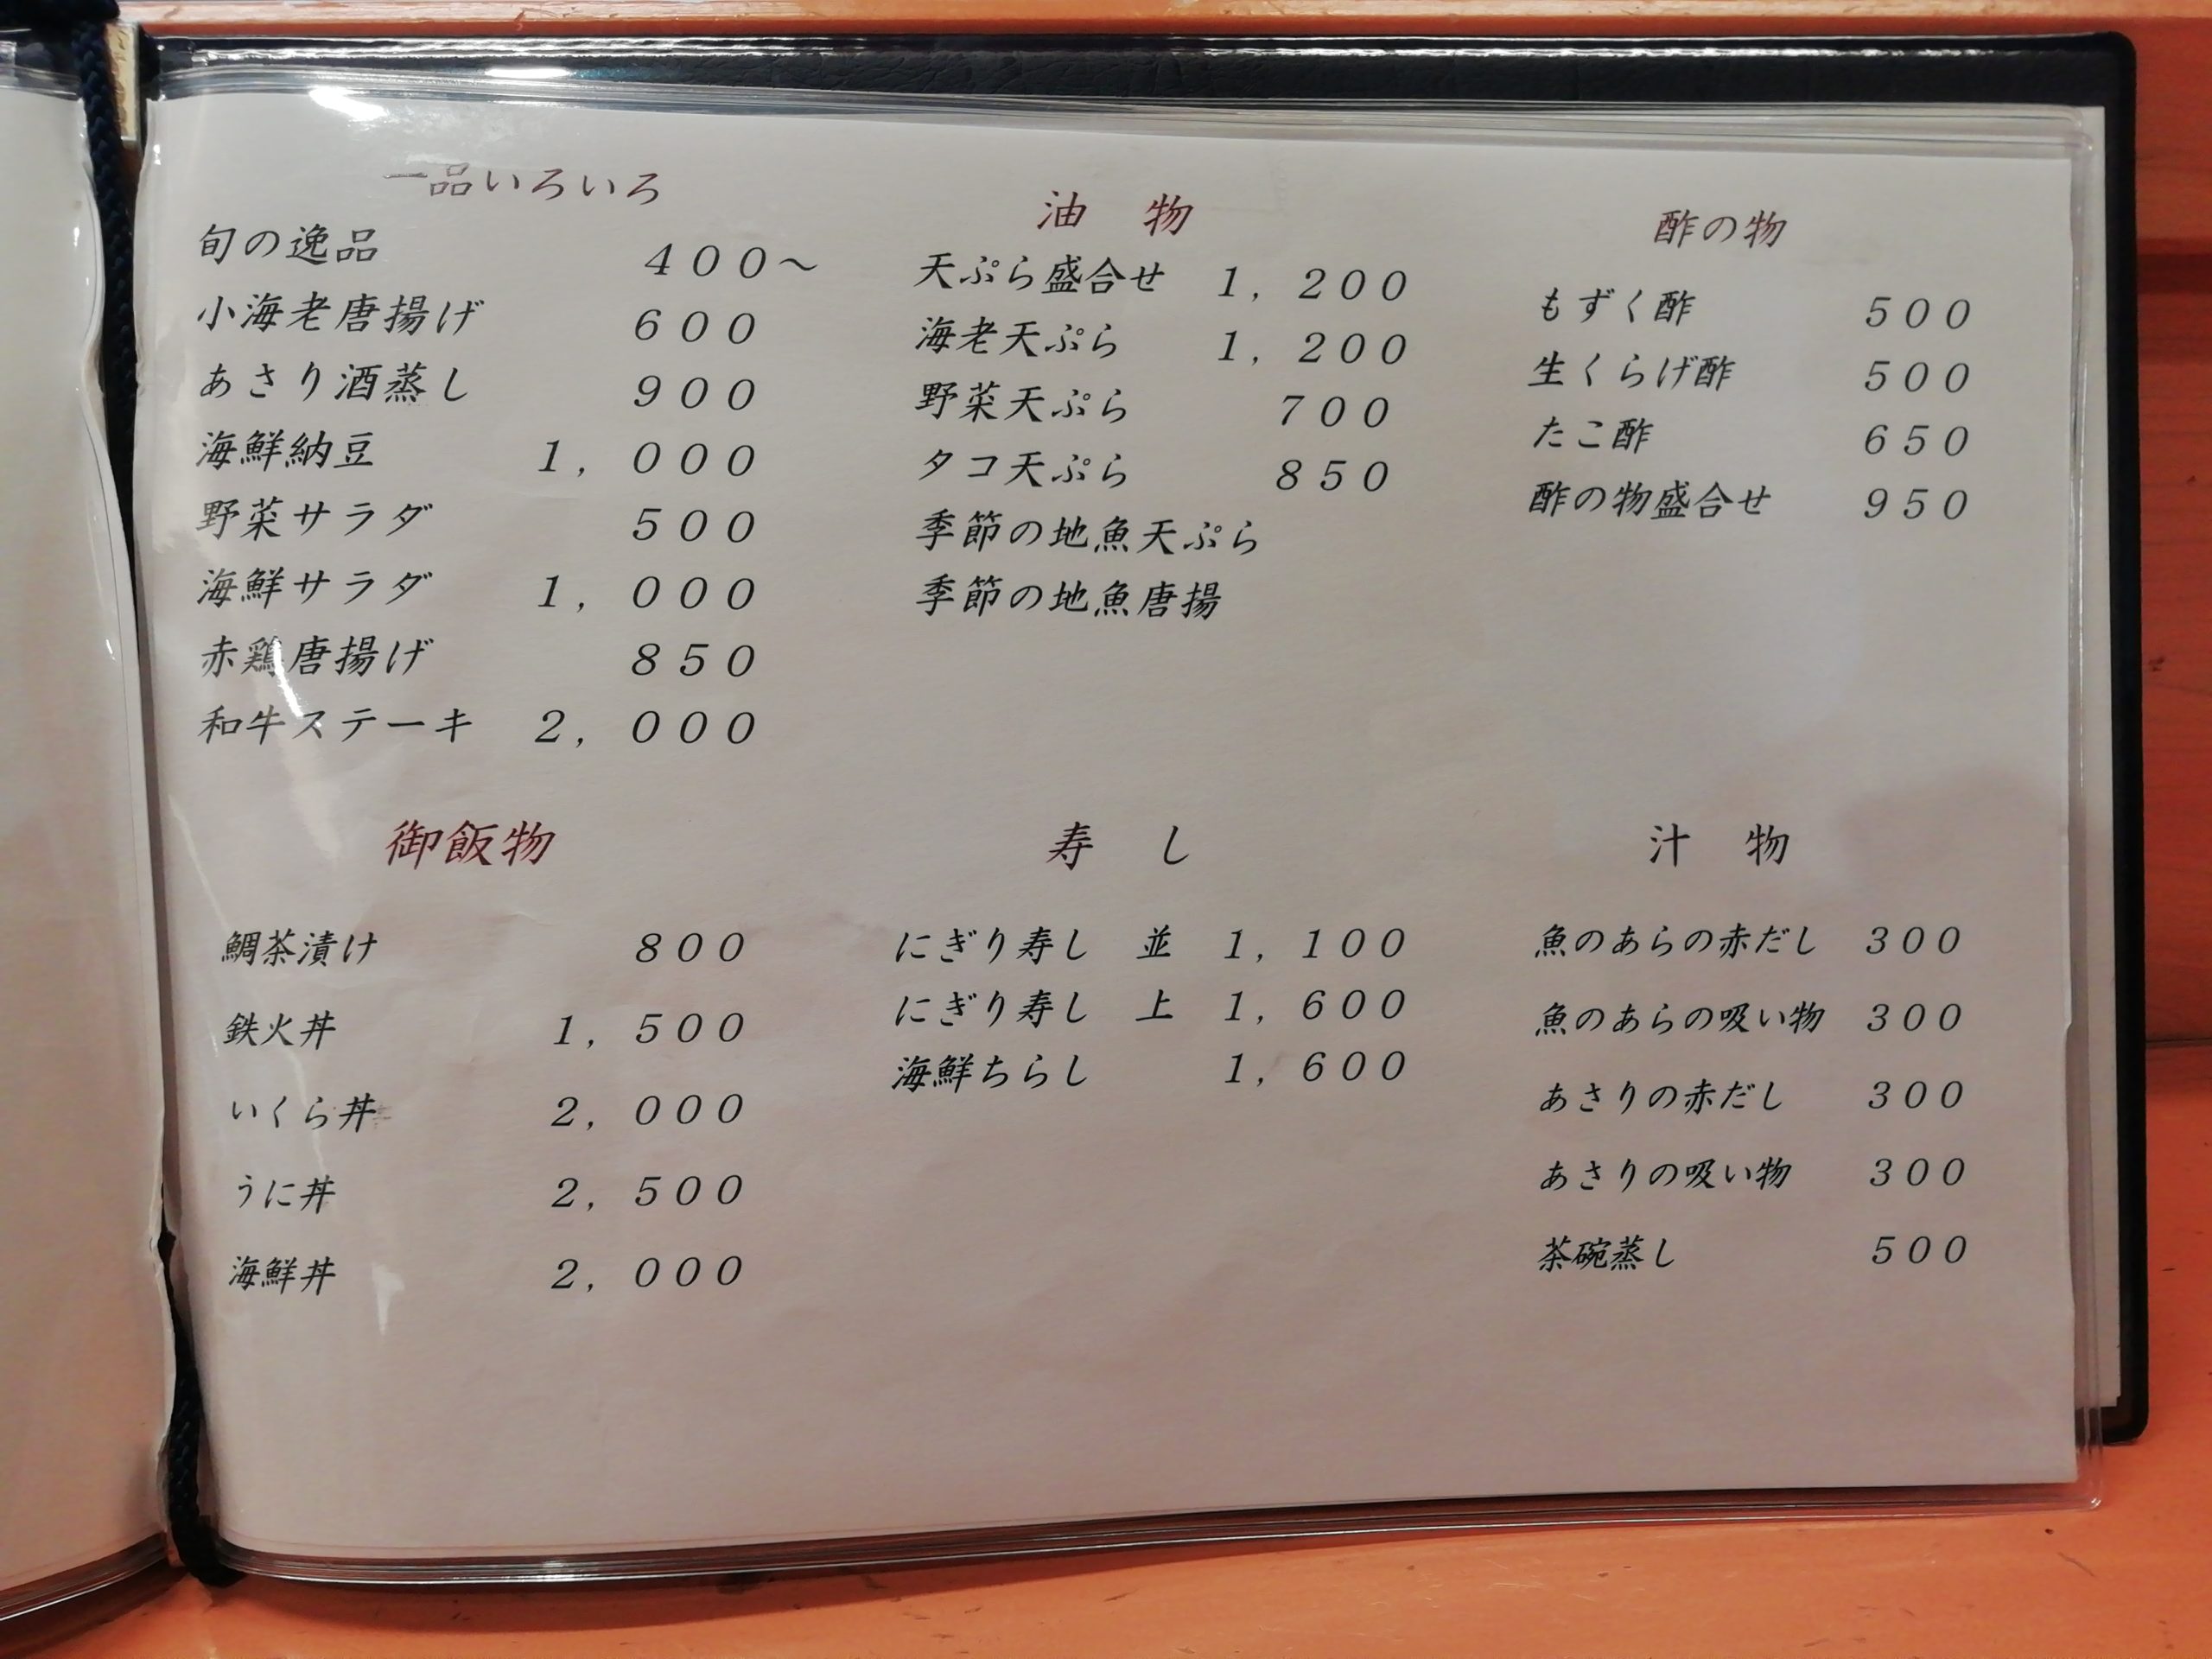 一品いろいろ
旬の逸品 400～
小海老唐揚げ 600
あさり酒蒸し 900
海鮮納豆 1,000
野菜サラダ 500
海鮮サラダ 1,000
赤鶏唐揚げ 850
和牛ステーキ 2,000
油 物
天ぷら盛合せ 1,200
海老天ぷら 1,200
野菜天ぷら 700
タコ天ぷら 850
季節の地魚天ぷら
季節の地魚唐揚
酢の物
もずく酢 500
生くらげ酢 500
たこ酢 650
酢の物盛合せ 950
御飯物
鯛茶漬け 800
鉄火丼 1,500
いくら丼 2,000
うに丼 2,500
海鮮丼 2,000
寿 し
にぎり寿し 並 1,100
にぎり寿し 上 1,600
海鮮ちらし 1,600
汁 物
魚のあらの赤だし 300
魚のあらの吸い物 300
あさりの赤だし 300
あさりの吸い物 300
茶碗蒸し 500